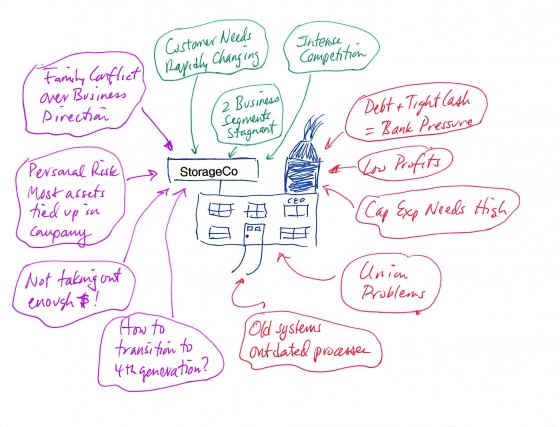 Customer Needs
Rapidly Changing
Intense
Competition
Family Conflict
over Business
Direction
2 Business
Segments
Stagnant
Debt + Tight Cash
= Bank Pressure
StorageCo
Low Profits
Personal Risk
Most assets
tied up in
Company
CEO
Cap Exp Needs High
Not taking out
enough $!
Union
Problems
How to
transition to
4th generation?
Old systems
outdated processes